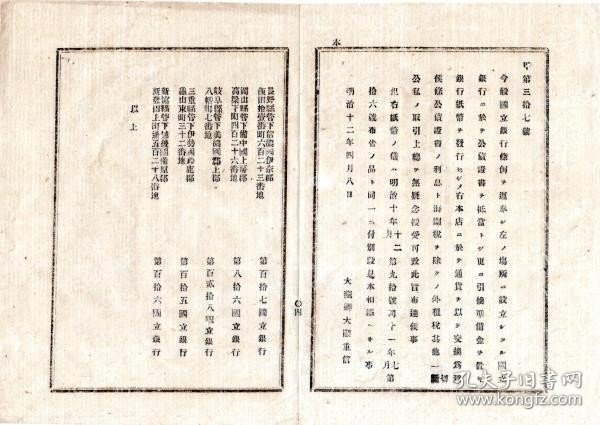 本
甲第三拾七號
今般國立銀行條例ヲ遵奉シ左ノ場所ニ設立シタル國立
銀行ニ於テ公債證書ヲ抵當トシ更ニ引換準備金ヲ
銀行紙幣ヲ發行セシメ右本店ニ於テ通貨ヲ以テ交換爲致
候條公債證書ノ利息ト海關税ヲ除クノ外租税其他一切
公私ノ取引上總テ無疑念授受可致此旨布達候事
但右紙幣ノ儀ハ明治十年十二月第九拾號同十一年七月第
拾六號布告ノ品ト同一ニ付別段見本相添ヘサル事
明治十二年四月八日
大藏卿大隈重信
四
長野縣管下信濃國伊奈郡
飯田拾壹番町六百二十三番地
第百十七國立銀行
岡山縣管下備中國上房郡
高梁下町四百二十六番地
第八十六國立銀行
岐阜縣管下美濃國郡上郡
八幡町七番地
第百貳拾八國立銀行
三重縣管下伊勢國鈴鹿郡
龜山東町三十二番地
第百十五國立銀行
新潟縣管下越後國蒲原郡
新發田上町通五百二十八番地
第百十六國立銀行
以上
孔夫子旧书网
www.kongfz.com